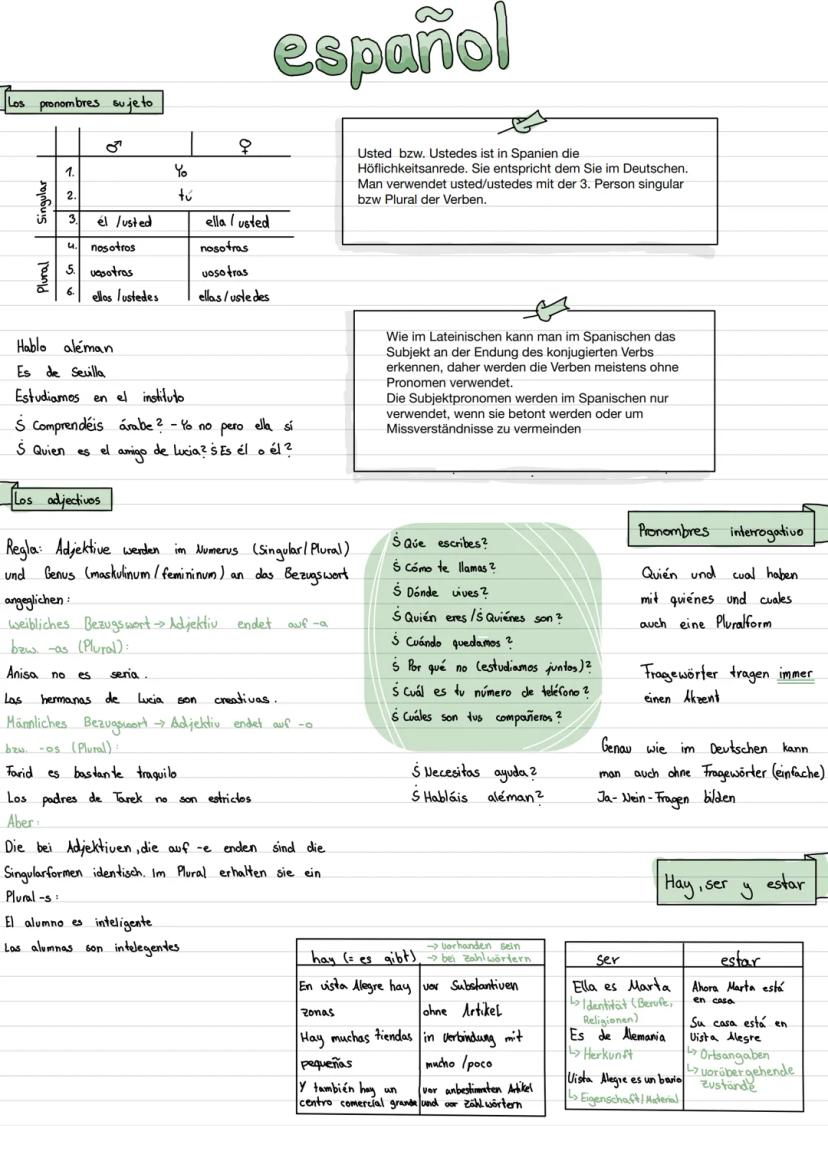 español
Los pronombres sujeto
♂ ♀
Singular
1. Yo
2. tú
3. él /usted ella / usted
Plural
4. nosotros nosotras
5. vosotros vosotras
6. ellos /ustedes ellas/ustedes
Usted bzw. Ustedes ist in Spanien die
Höflichkeitsanrede. Sie entspricht dem Sie im Deutschen.
Man verwendet usted/ustedes mit der 3. Person singular
bzw Plural der Verben.
Wie im Lateinischen kann man im Spanischen das
Subjekt an der Endung des konjugierten Verbs
erkennen, daher werden die Verben meistens ohne
Pronomen verwendet.
Die Subjektpronomen werden im Spanischen nur
verwendet, wenn sie betont werden oder um
Missverständnisse zu vermeinden
Hablo aléman
Es de Sevilla
Estudiamos en el instituto
¿ Comprendéis árabe? - Yo no pero ella sí
¿ Quien es el amigo de Lucia? ¿Es él o él?
Los adjectivos
Regla: Adjektive werden im Numerus (Singular/Plural)
und Genus (maskulinum / femininum) an das Bezugswort
angeglichen:
weibliches Bezugswort → Adjektiv endet auf -a
bzw. -as (Plural):
Anisa no es seria.
Las hermanas de Lucia son creativas.
Männliches Bezugswort → Adjektiv endet auf -o
bzw. -os (Plural):
Farid es bastante traquilo
Los padres de Tarek no son estrictos
Aber:
Die bei Adjektiven, die auf -e enden sind die
Singularformen identisch. Im Plural erhalten sie ein
Plural -s:
El alumno es inteligente
Las alumnas son intelegentes
¿ Qúe escribes?
¿ Cómo te llamas?
¿ Dónde vives?
¿ Quién eres /¿ Quiénes son?
¿ Cuándo quedamos?
¿ Por qué no (estudiamos juntos)?
¿ Cuál es tu número de teléfono?
¿ Cuáles son tus compañeros?
¿ Necesitas ayuda?
¿ Habláis aléman?
Pronombres interrogativo
Quién und cual haben
mit quiénes und cuales
auch eine Pluralform
Fragewörter tragen immer
einen Akzent
Genau wie im Deutschen kann
man auch ohne Fragewörter (einfache)
Ja- Nein- Fragen bilden
Hay, ser y estar
hay (= es gibt) → vorhanden sein
→ bei Zahlwörtern
En vista Alegre hay vor Substantiven
zonas ohne Artikel
Hay muchas tiendas in Verbindung mit
pequeñas mucho /poco
Y también hay un vor anbestimmten Artikel
centro comercial grande und vor Zahlwörtern
ser estar
Ella es Marta
↳ Identität (Berufe,
Religionen)
Es de Alemania
↳ Herkunft
Vista Alegre es un bario
↳ Eigenschaft/Material
Ahora Marta está
en casa
Su casa está en
Vista Alegre
↳ Ortsangaben
↳ vorübergehende
Zustände